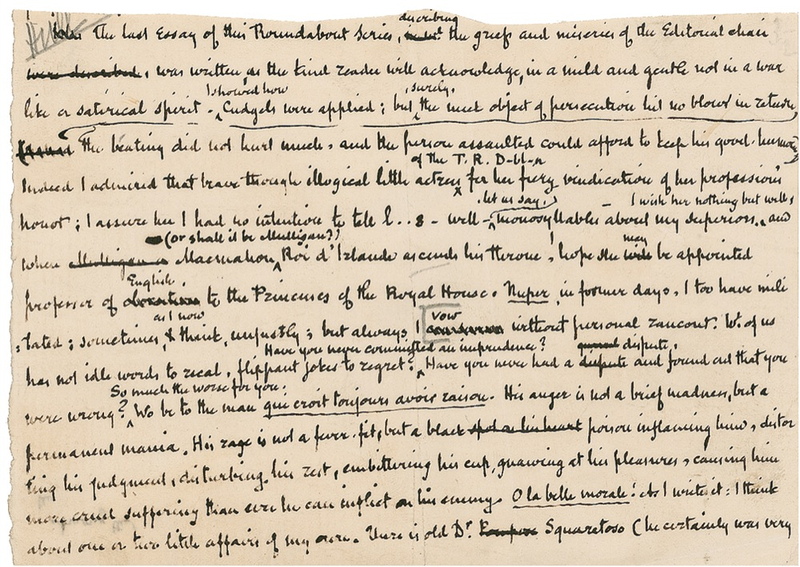 describing
The last Essay of this Roundabout Series, the griefs and miseries of the Editorial chair
were described, was written as the kind reader will acknowledge, in a mild and gentle not in a war
I showed how , surely,
like or satirical spirit - Cudgels were applied; but the meek object of persecution hit no blows in return
The beating did not hurt much, and the person assaulted could afford to keep his good-humour;
of the T. R. D-bl-n
Indeed I admired that brave though illogical little actress for her fiery vindication of her profession's
let us say, - I wish her nothing but well &
honor; I assure her I had no intention to tell l..s - well - monosyllables about my superiors, and
(or shall it be Mulligan?) may
when Mulligan is Macmahon, Roi d'Irlande ascends his throne, I hope she be appointed
English,
professor of to the Princesses of the Royal House. Nuper, in former days, I too have mili
as I now vow
tated; sometimes, & think, unjustly; but always I without personal rancour. W. of us
Have you never committed an imprudence? dispute,
has not idle words to recal, flippant jokes to regret? Have you never had a dispute and found out that you
So much the worse for you.
were wrong? Wo be to the man qui croit toujours avoir raison. His anger is not a brief madness, but a
permanent mania. His rage is not a fever-fit, but a black spot on his heart poison inflaming him, distor
ting his judgment, disturbing his rest, embittering his cup, gnawing at his pleasures, causing him
more cruel suffering than ever he can inflict on his enemy. O la belle morale! As I write it: I think
about one or two little affairs of my own. There is old Dr. Squaretoso (he certainly was very